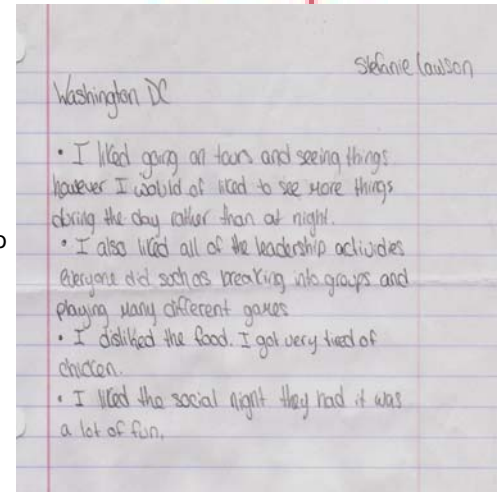 Stefanie Lawson
Washington DC
• I liked going on tours and seeing things
however I would of liked to see more things
during the day rather than at night.
• I also liked all of the leadership activities
everyone did such as breaking into groups and
playing many different games
• I disliked the food. I got very tired of
chicken.
• I liked the social night they had it was
a lot of fun.